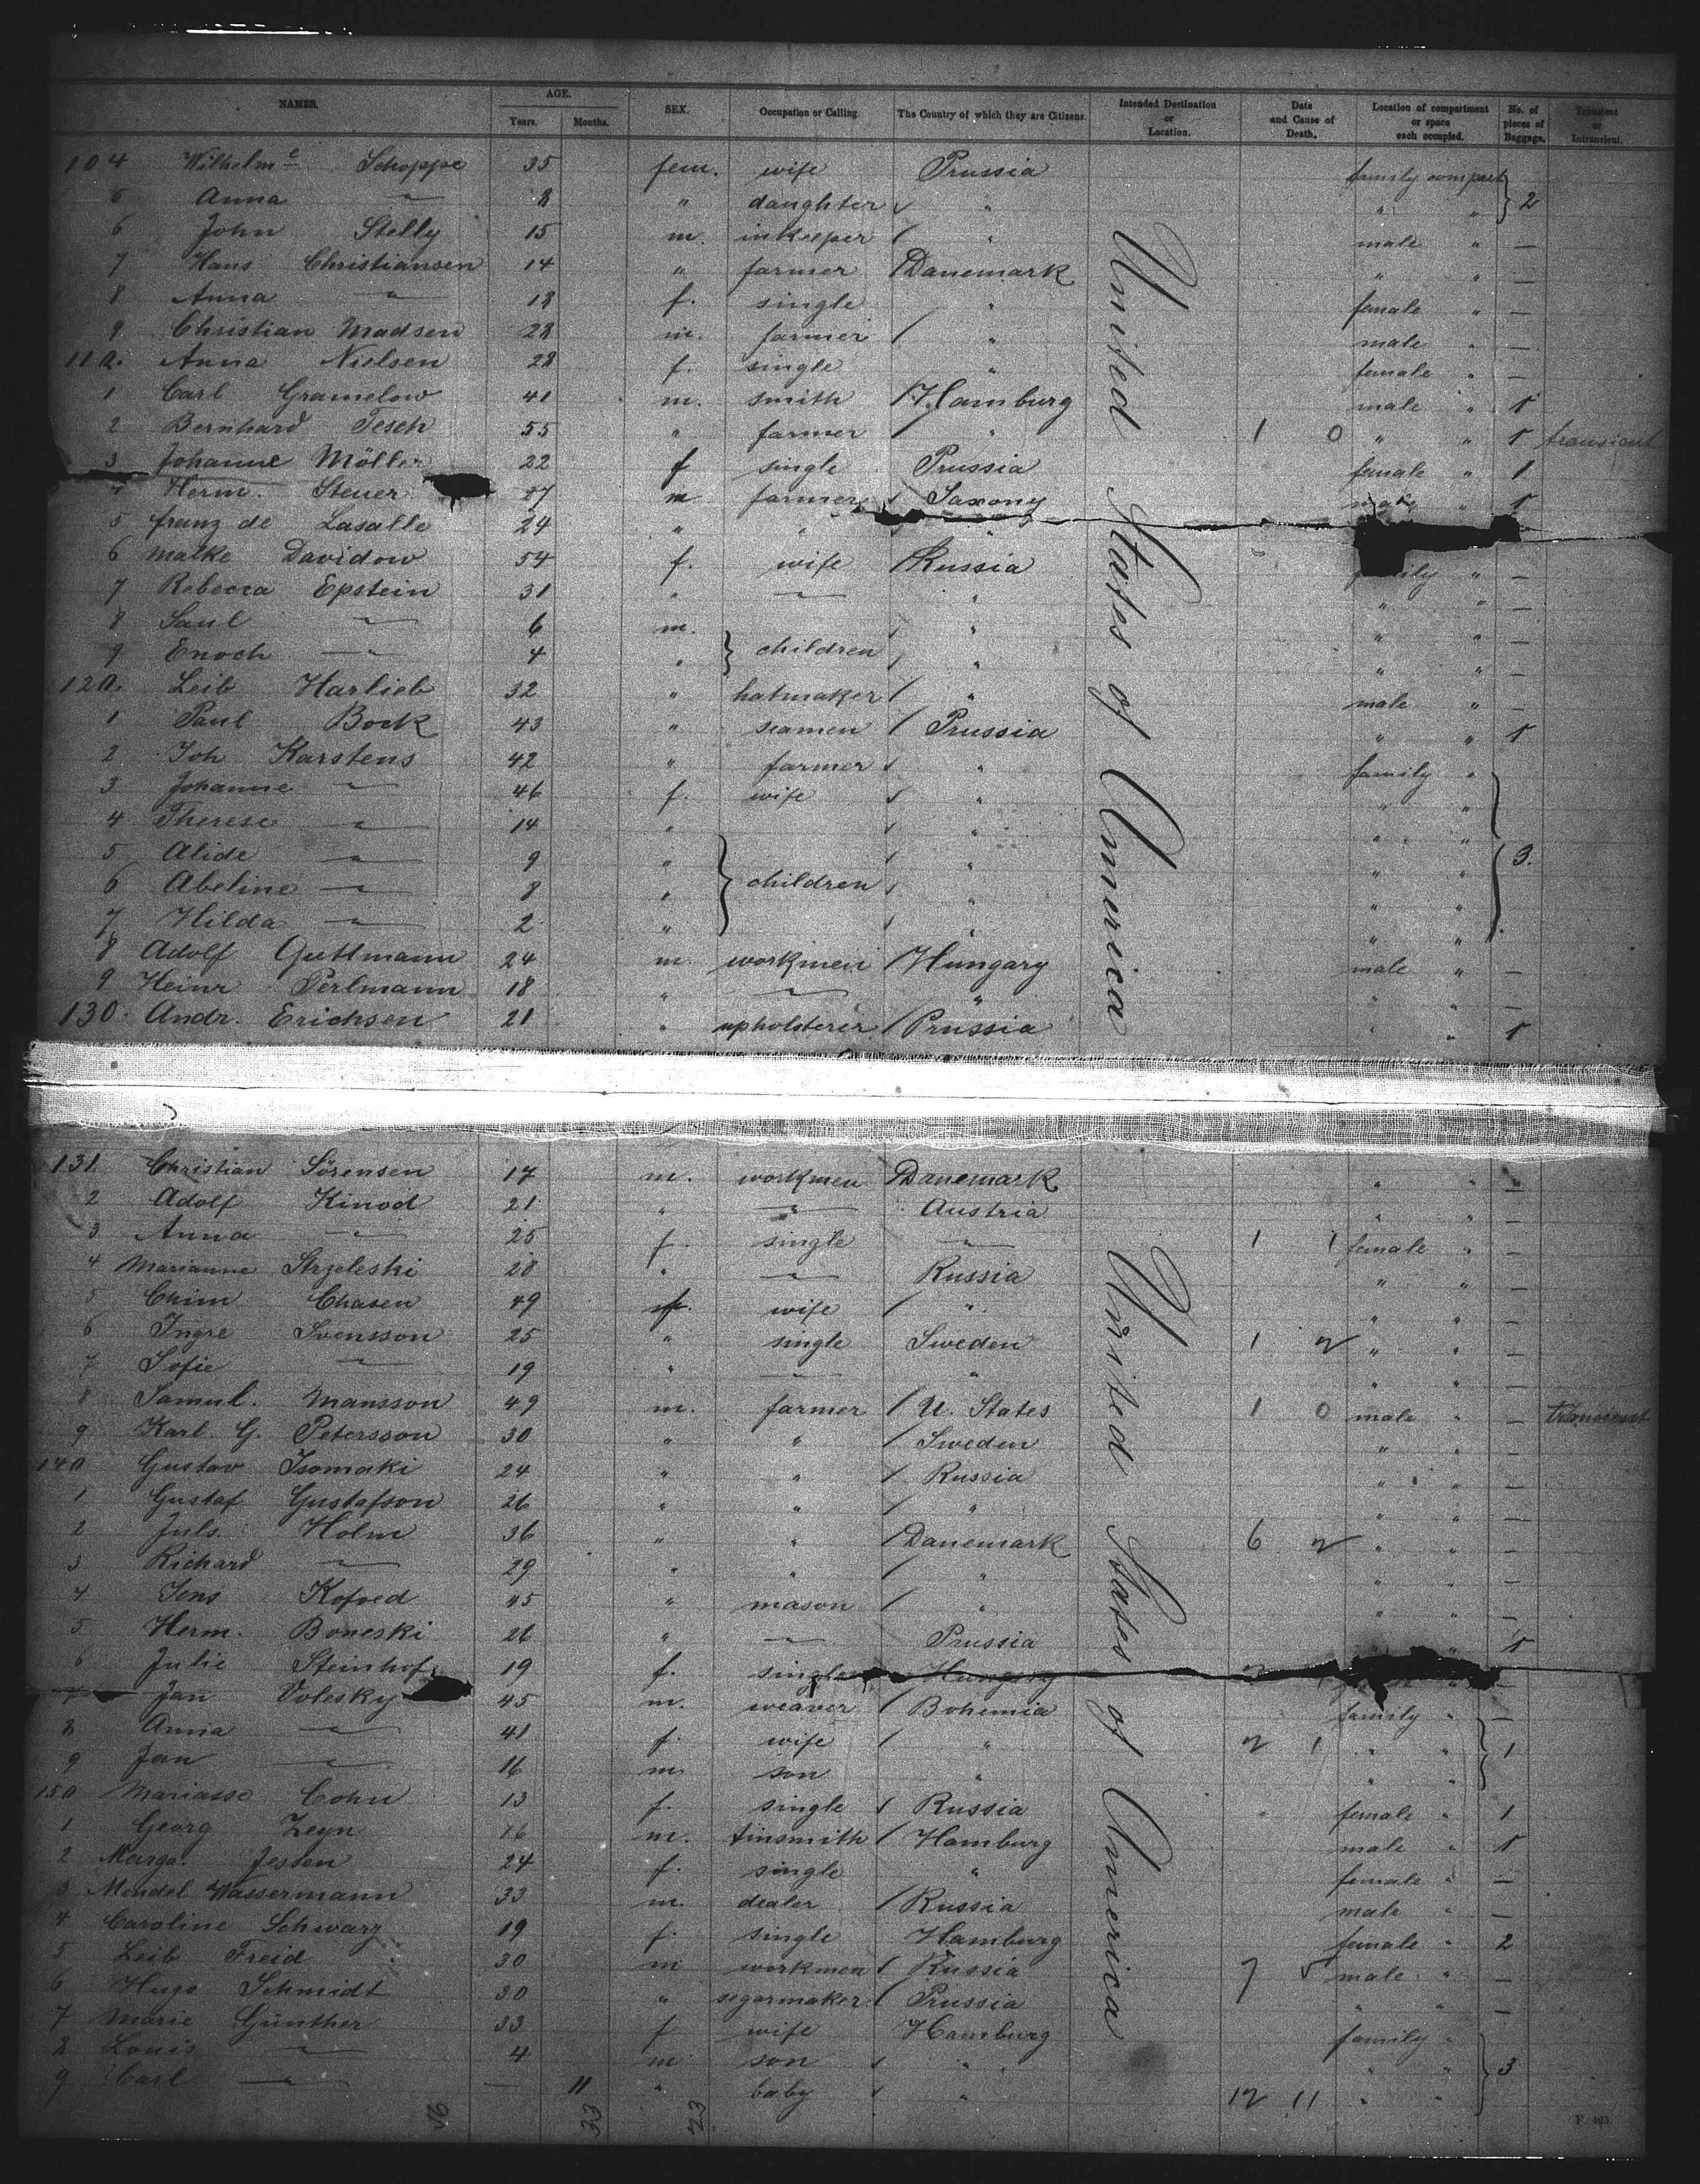 NAMES. AGE. Years. Months. SEX. Occupation or Calling. The Country of which they are Citizens. Intended Destination or Location. Date and Cause of Death. Location of compartment or space each occupied. No. of pieces of Baggage. Transient or Intransient.
104 Wilhelme Schoppe 35 fem. wife Prussia family compart
5 Anna " 8 " daughter " " " 2
6 John Stelly 15 m. inkeeper " male " —
7 Hans Christiansen 14 " farmer Danemark " " —
8 Anna " 18 f. single " female " —
9 Christian Madsen 28 m. farmer " male " —
110. Anna Nielsen 28 f. single " female " —
1 Carl Gramelow 41 m. smith Hamburg male " 1
2 Bernhard Tesch 55 " farmer " 1 0 " " 1 transient
3 Johanne Möller 22 f single Prussia female " 1
4 Herm. Steuer 27 m farmer Saxony male " 1
5 franz de Lasalle 24 " " "
6 Malke Davidow 54 f. wife Russia family " —
7 Rebecca Epstein 31 " " " " " —
8 Saul " 6 m. " " " —
9 Enoch " 4 " children " " " —
120. Leib Harlieb 32 " hatmaker " male " —
1 Paul Bock 43 " seamen Prussia " " 1
2 Joh Karstens 42 " farmer " family "
3 Johanne " 46 f. wife " " "
4 Therese " 14 " " " "
5 Alide " 9 " " " " 3.
6 Abeline " 8 " children " " "
7 Hilda " 2 " " " "
8 Adolf Guttmann 24 m workmen Hungary male " —
9 Heinr Perlmann 18 " " " " " —
130. Andr. Erichsen 21 " upholsterer Prussia " " 1
United States of America
131 Christian Sörensen 17 m. workmen Danemark " " —
2 Adolf Hinod 21 " " Austria " " —
3 Anna " 25 f. single " 1 1 female " —
4 Marianne Strzeleski 20 " " Russia " " —
5 Chim Chasen 49 f. wife " " " —
6 Ingre Svensson 25 " single Sweden 1 2 " " —
7 Sofie " 19 " " " " " —
8 Samul. Mansson 49 m. farmer U. States 1 0 male " — transient
9 Karl G. Petersson 30 " " Sweden " " —
140 Gustav Isomaki 24 " " Russia " " —
1 Gustaf Gustafson 26 " " " " " —
2 Juls. Holm 36 " " Danemark 6 2 " " —
3 Richard " 29 " " " " " —
4 Jens Kofoed 45 " mason " " " —
5 Herm. Boneski 26 " " Prussia " " 1
6 Julie Steinhof 19 f. single Hungary —
7 Jan Volesky 45 m. weaver Bohemia family " —
8 Anna " 41 f. wife " 2 1 " " 1
9 Jan " 16 m. son " " "
150 Mariasse Cohn 13 f. single Russia female " 1
1 Georg Zeyn 16 m. tinsmith Hamburg male " 1
2 Marga. Jessen 24 f. single " female " —
3 Mendel Wassermann 33 m. dealer Russia male " —
4 Caroline Schwarz 19 f. single Hamburg female " 2
5 Leib Freid 30 m workmen Russia 7 5 male " —
6 Hugo Schmidt 30 " segarmaker Prussia " " —
7 Marie Günther 33 f wife Hamburg family "
8 Louis " 4 m son " " " 3
9 Carl " — 11 " baby " 12 11 " "
United States of America
16 33 23